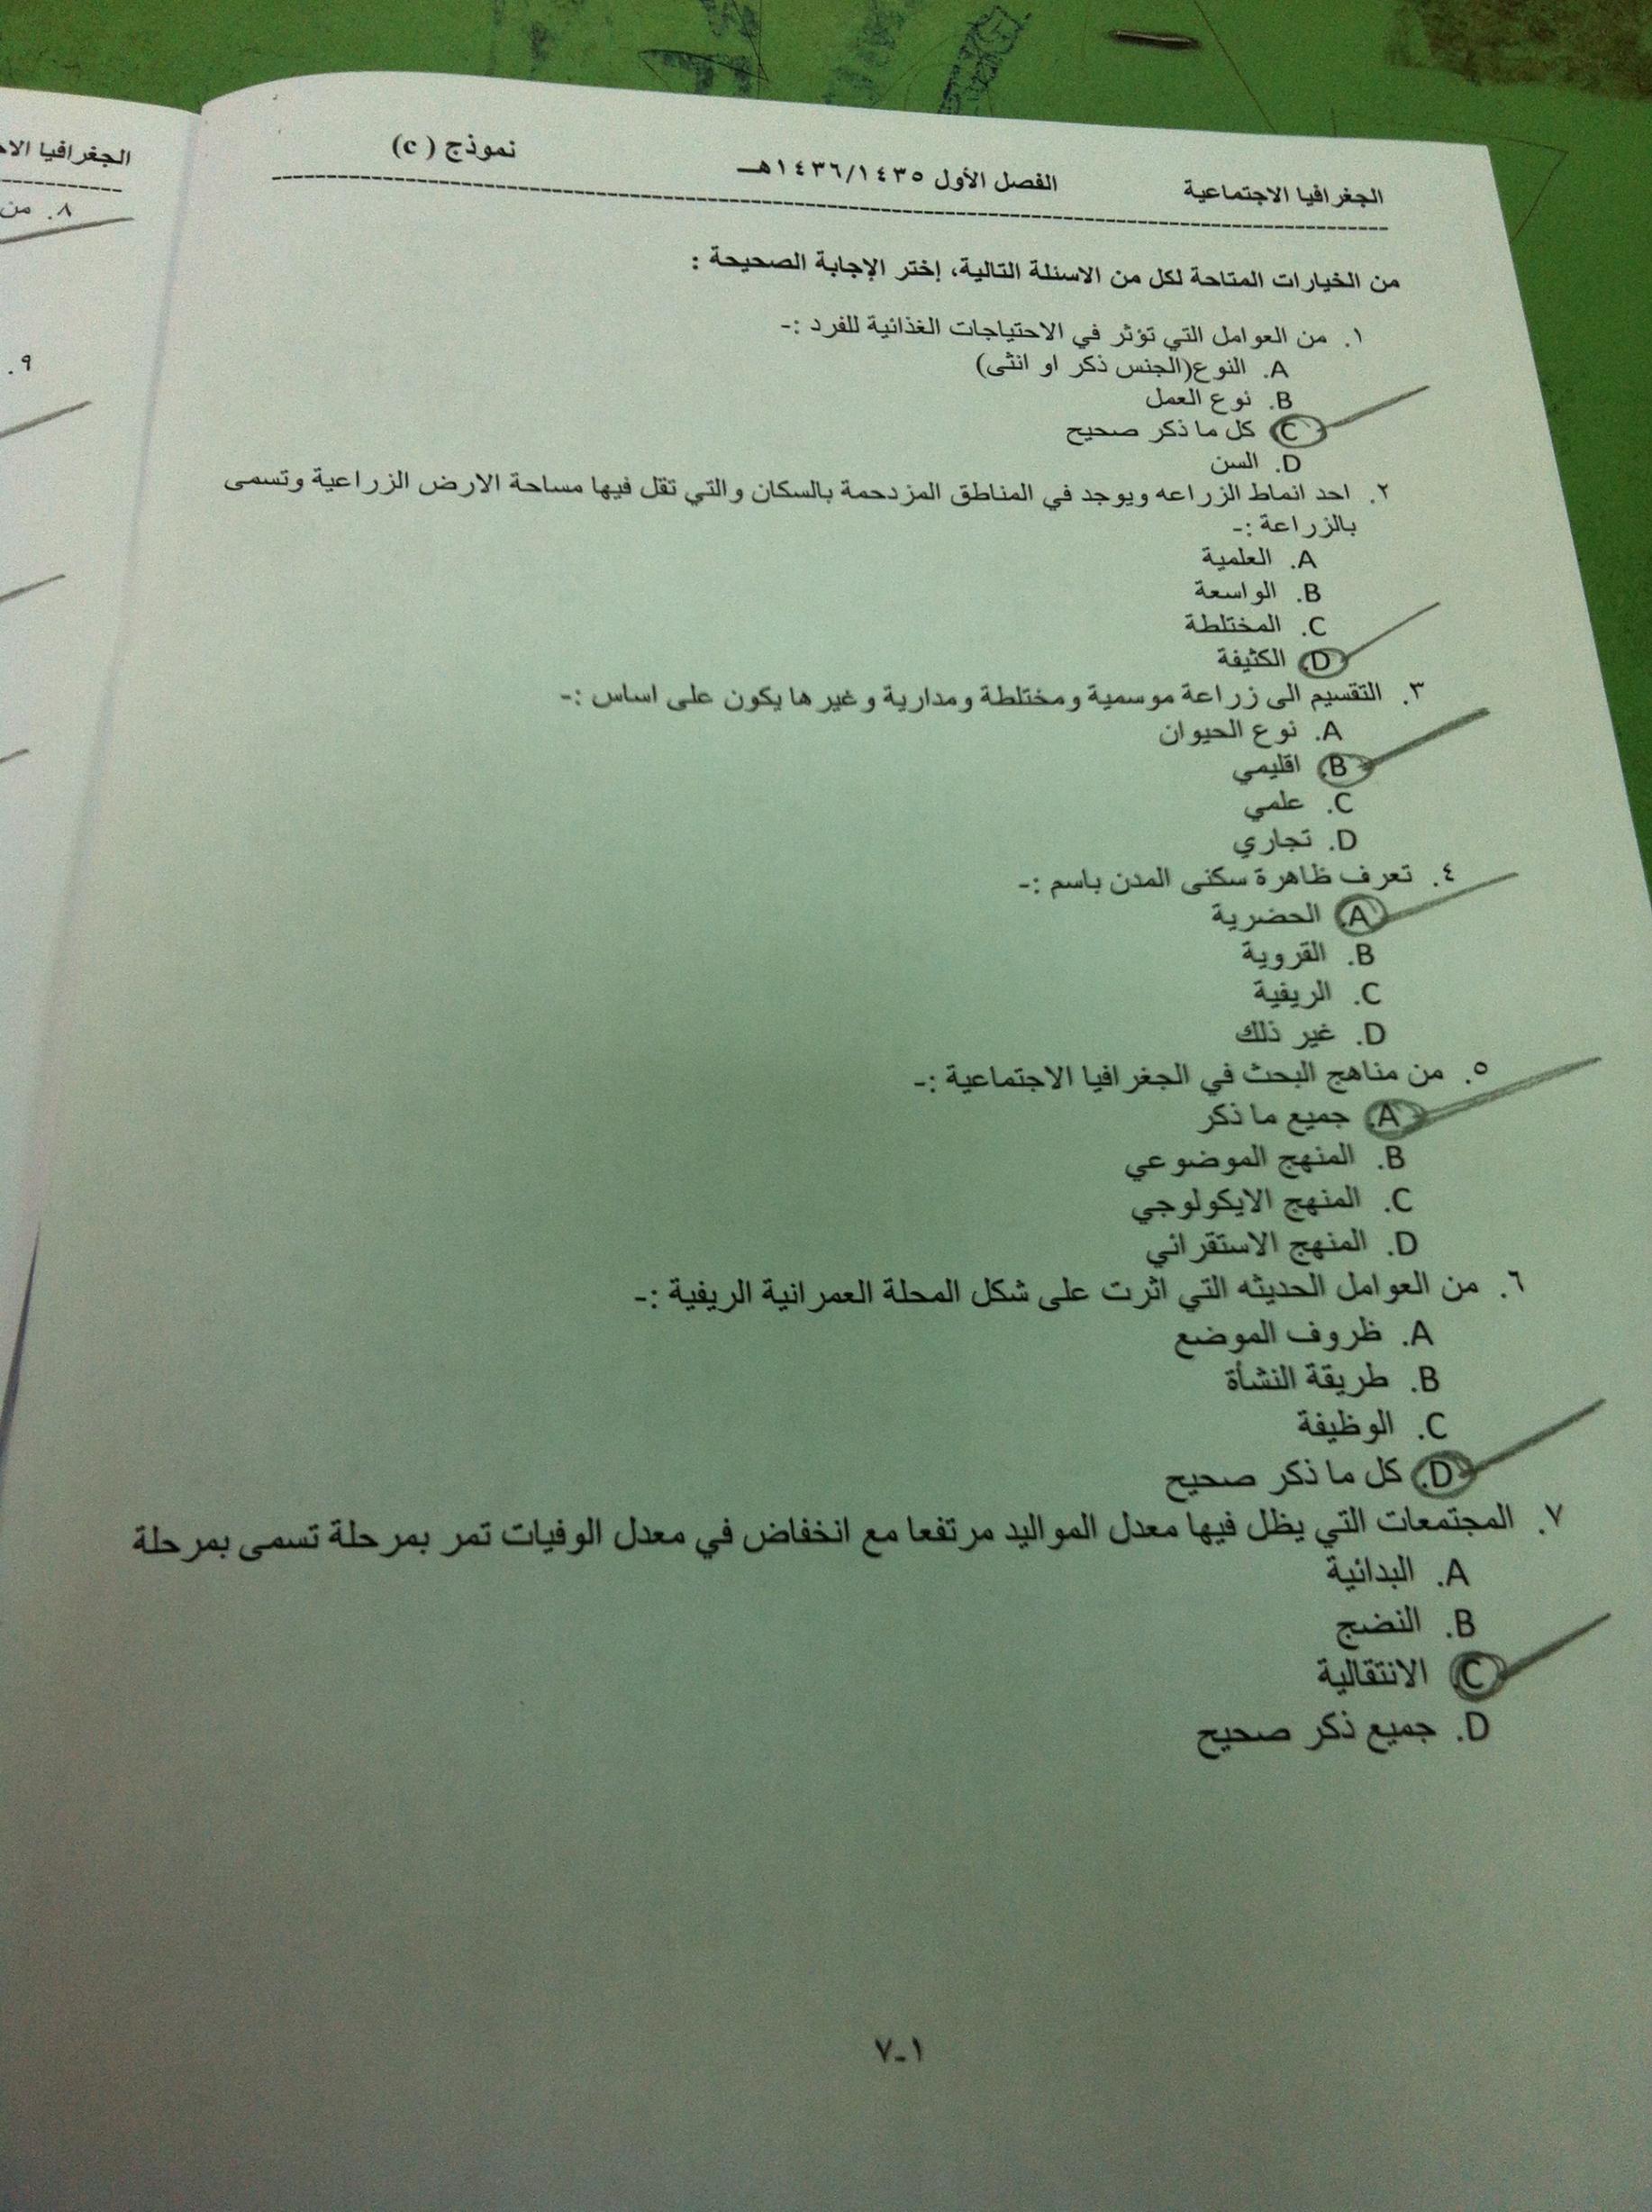 الجغرافيا الاجتماعية الفصل الأول ١٤٣٦/١٤٣٥هـ نموذج ( c)
من الخيارات المتاحة لكل من الاسئلة التالية، إختر الإجابة الصحيحة :
١. من العوامل التي تؤثر في الاحتياجات الغذائية للفرد :-
A. النوع(الجنس ذكر او انثى)
B. نوع العمل
C. كل ما ذكر صحيح
D. السن
٢. احد انماط الزراعه ويوجد في المناطق المزدحمة بالسكان والتي تقل فيها مساحة الارض الزراعية وتسمى
بالزراعة :-
A. العلمية
B. الواسعة
C. المختلطة
D. الكثيفة
٣. التقسيم الى زراعة موسمية ومختلطة ومدارية وغيرها يكون على اساس :-
A. نوع الحيوان
B. اقليمي
C. علمي
D. تجاري
٤. تعرف ظاهرة سكنى المدن باسم :-
A. الحضرية
B. القروية
C. الريفية
D. غير ذلك
٥. من مناهج البحث في الجغرافيا الاجتماعية :-
A. جميع ما ذكر
B. المنهج الموضوعي
C. المنهج الايكولوجي
D. المنهج الاستقرائي
٦. من العوامل الحديثه التي اثرت على شكل المحلة العمرانية الريفية :-
A. ظروف الموضع
B. طريقة النشأة
C. الوظيفة
D. كل ما ذكر صحيح
٧. المجتمعات التي يظل فيها معدل المواليد مرتفعا مع انخفاض في معدل الوفيات تمر بمرحلة تسمى بمرحلة
A. البدائية
B. النضج
C. الانتقالية
D. جميع ذكر صحيح
٧-١
الجغرافيا
٨. من
٩.